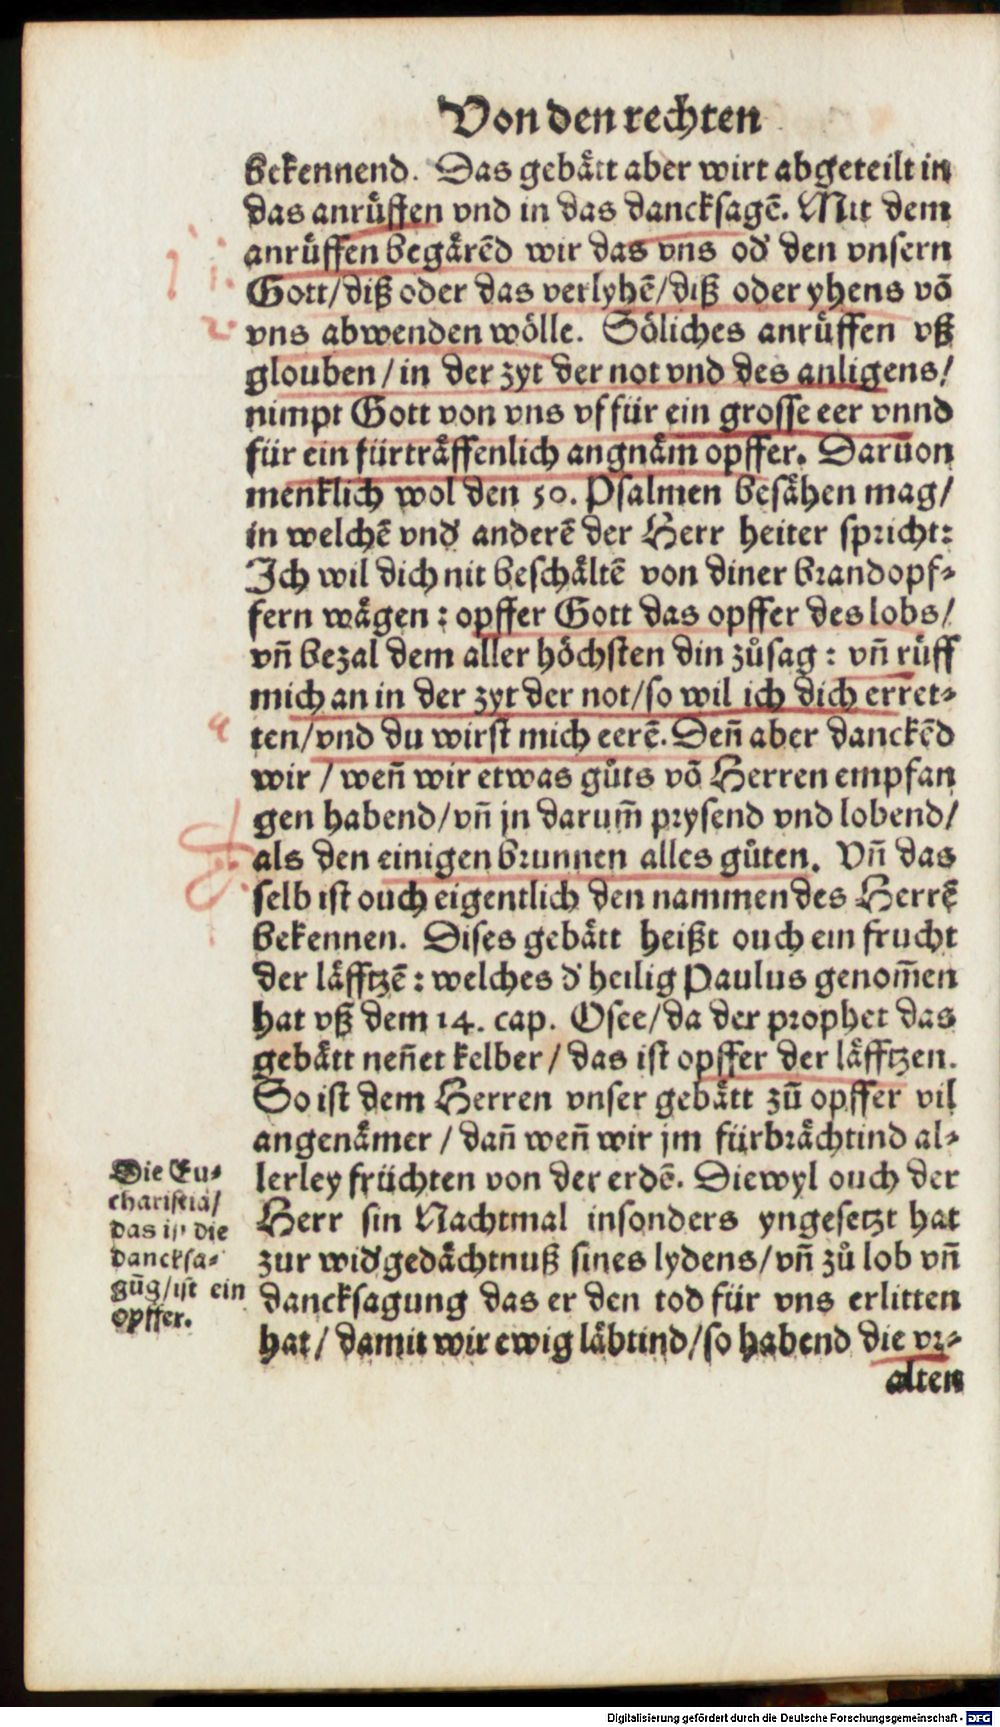 Von den rechten
bekennend. Das gebätt aber wirt abgeteilt in
das anrüffen vnd in das dancksagē. Mit dem
anrüffen begärēd wir das vns od' den vnsern
Gott/diß oder das verlyhē/diß oder yhens vō
vns abwenden wölle. Söliches anrüffen vß
glouben/in der zyt der not vnd des anligens/
nimpt Gott von vns vf für ein grosse eer vnnd
für ein fürträffenlich angnäm opffer. Daruon
mencklich wol den 50. Psalmen besähen mag/
in welchē vnd anderē der Herr heiter spricht:
Ich wil dich nit beschältē von diner brandopf-
fern wägen: opffer Gott das opffer des lobs/
vñ bezal dem aller höchsten din zůsag: vñ rüff
mich an in der zyt der not/so wil ich dich erret-
ten/vnd du wirst mich eerē. Deñ aber danckēd
wir/weñ wir etwas gůts vō Herren empfan
gen habend/vñ jn darum̄ prysend vnd lobend/
als den einigen brunnen alles gůten. Vñ das
selb ist ouch eigentlich den nammen des Herrē
bekennen. Dises gebätt heißt ouch ein frucht
der läfftzē: welches d' heilig Paulus genom̄en
hat vß dem 14. cap. Osee/da der prophet das
gebätt neñet kelber/das ist opffer der läfftzen.
So ist dem Herren vnser gebätt zū opffer vil
angenämer/dañ weñ wir jm fürbrächtind al-
lerley früchten von der erdē. Diewyl ouch der
Herr sin Nachtmal insonders yngesetzt hat
zur wid'gedächtnuß sines lydens/vñ zů lob vñ
dancksagung das er den tod für vns erlitten
hat/damit wir ewig läbtind/so habend die vr-
alten
Die Eu-
charistia/
das ist die
dancksa-
gūg/ist ein
opffer.
Digitalisierung gefördert durch die Deutsche Forschungsgemeinschaft - DFG